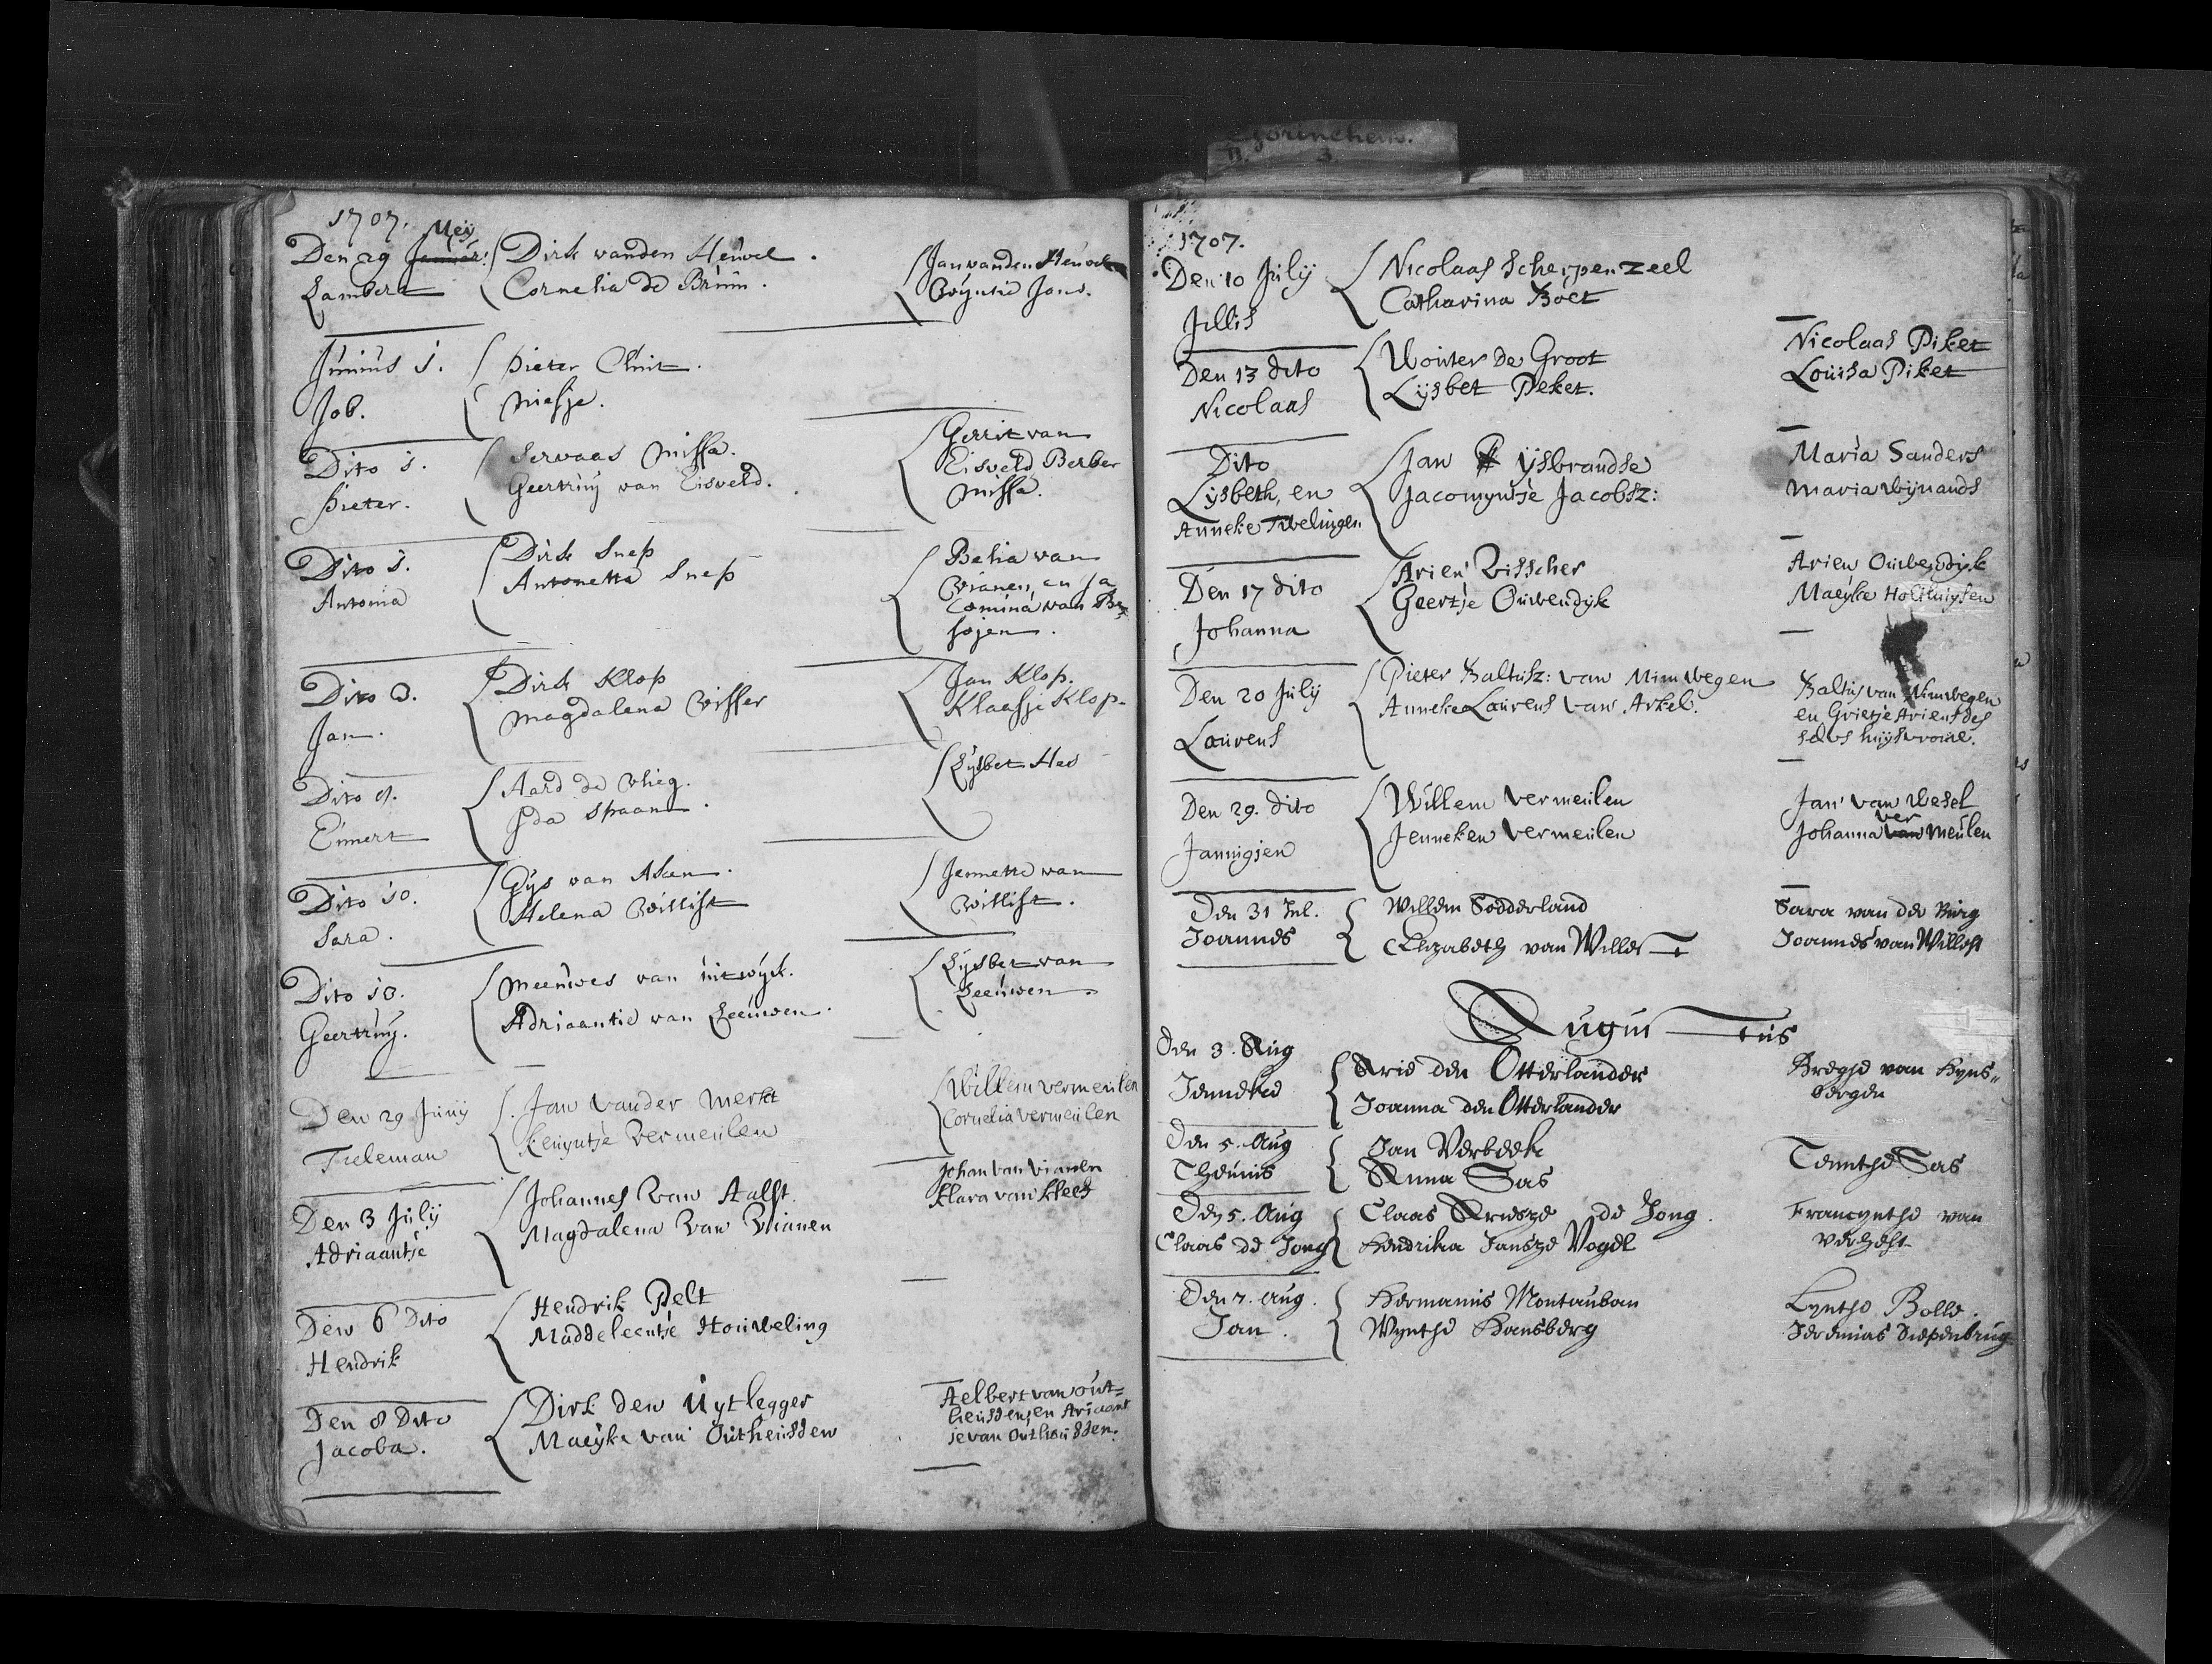 Gorinchem.
II. 3
1707.
Meij
Den 29 Januar: Dirk vanden Heuvel. Jan vanden Heuvel
Lambert Cornelia de Bruin. Wijntie Jans.
Junius 1. Pieter Cluit.
Job. Niesje.
Dito 1. Servaas Nissa. Gerrit van
Pieter. Geertruij van Eisveld. Eisveld Berber
Nissa.
Dito 1. Dirk Snep Belia van
Antonia Antonetta Snep Vianen, en Ja
comina van Be
sojen.
Dito 8. Dirk Klop Jan Klop.
Jan. Magdalena Visser Klaasje Klop.
Dito 9. Aard de Vlieg. Lijsbet Hes
Eimert Ida Spaan.
Dito 10. Gijs van Aken. Jennette van
Sara. Helena Willist Willist.
Dito 10. Meeuwes van uitwijck. Lijsbet van
Geertruij. Adriaantie van Leeuwen. Leeuwen.
Den 29 Junij Jan vander Merkt Willem vermeulen
Tieleman Leuyntje Vermeulen Cornelia vermeulen
Den 3 Julij Johannes Van Aalst. Johan van vianen
Adriaantje Magdalena Van Vianen Klara van Kleef
Den 6 Dito Hendrik Pelt
Hendrik Maddeleentje Houweling
Den 8 Dito Dirk den Uytlegger Aelbert van out=
Jacoba. Maeyke van Outheusden heusden, en Ariaant
je van Outheusden.
1707.
Den 10 Julij Nicolaas Scherpenzeel
Jillis Catharina Boet
Den 13 dito Wouter de Groot Nicolaas Piket
Nicolaas Lijsbet Peket. Louisa Piket
Dito Jan ijsbrandse Maria Sanders
Lijsbeth, en Jacomyntje Jacobsz: Maria Wijnands
Anneke Twelingen
Den 17 dito Arien Visscher Arien Ouwendijk
Johanna Geertje Ouwendijk Maeyke Holthuijsen
Den 20 Julij Pieter Baltusz: van Nimwegen Baltus van Nimwegen
Laurens Anneke Laurens van Arkel. en Grietje Ariens des
selvs huijsvrouw.
Den 29. dito Willem Vermeulen Jan van Wesel
ver
Jannigjen Jenneken Vermeulen Johanna van Meulen
Den 31 Jul. Willem Sodderland Sara van der Burg
Joannes Elizabeth van Willest Joannes van Willest
Augustus
Den 3. Aug Arie den Otterlander Bregje van Ryns„
Jenneke Joanna den Otterlander bergen
Den 5. Aug Jan Verbeek Teuntje Sas
Theunis Anna Sas
Den 5. Aug Claas Ariesze de Jong. Francyntje van
Claas de Jong Hendrika Jansze Vogel
Den 7. Aug. Hermanus Montauban Lyntje Bolle.
Jan. Wyntje Hansberg Jeremias Diepenbrug